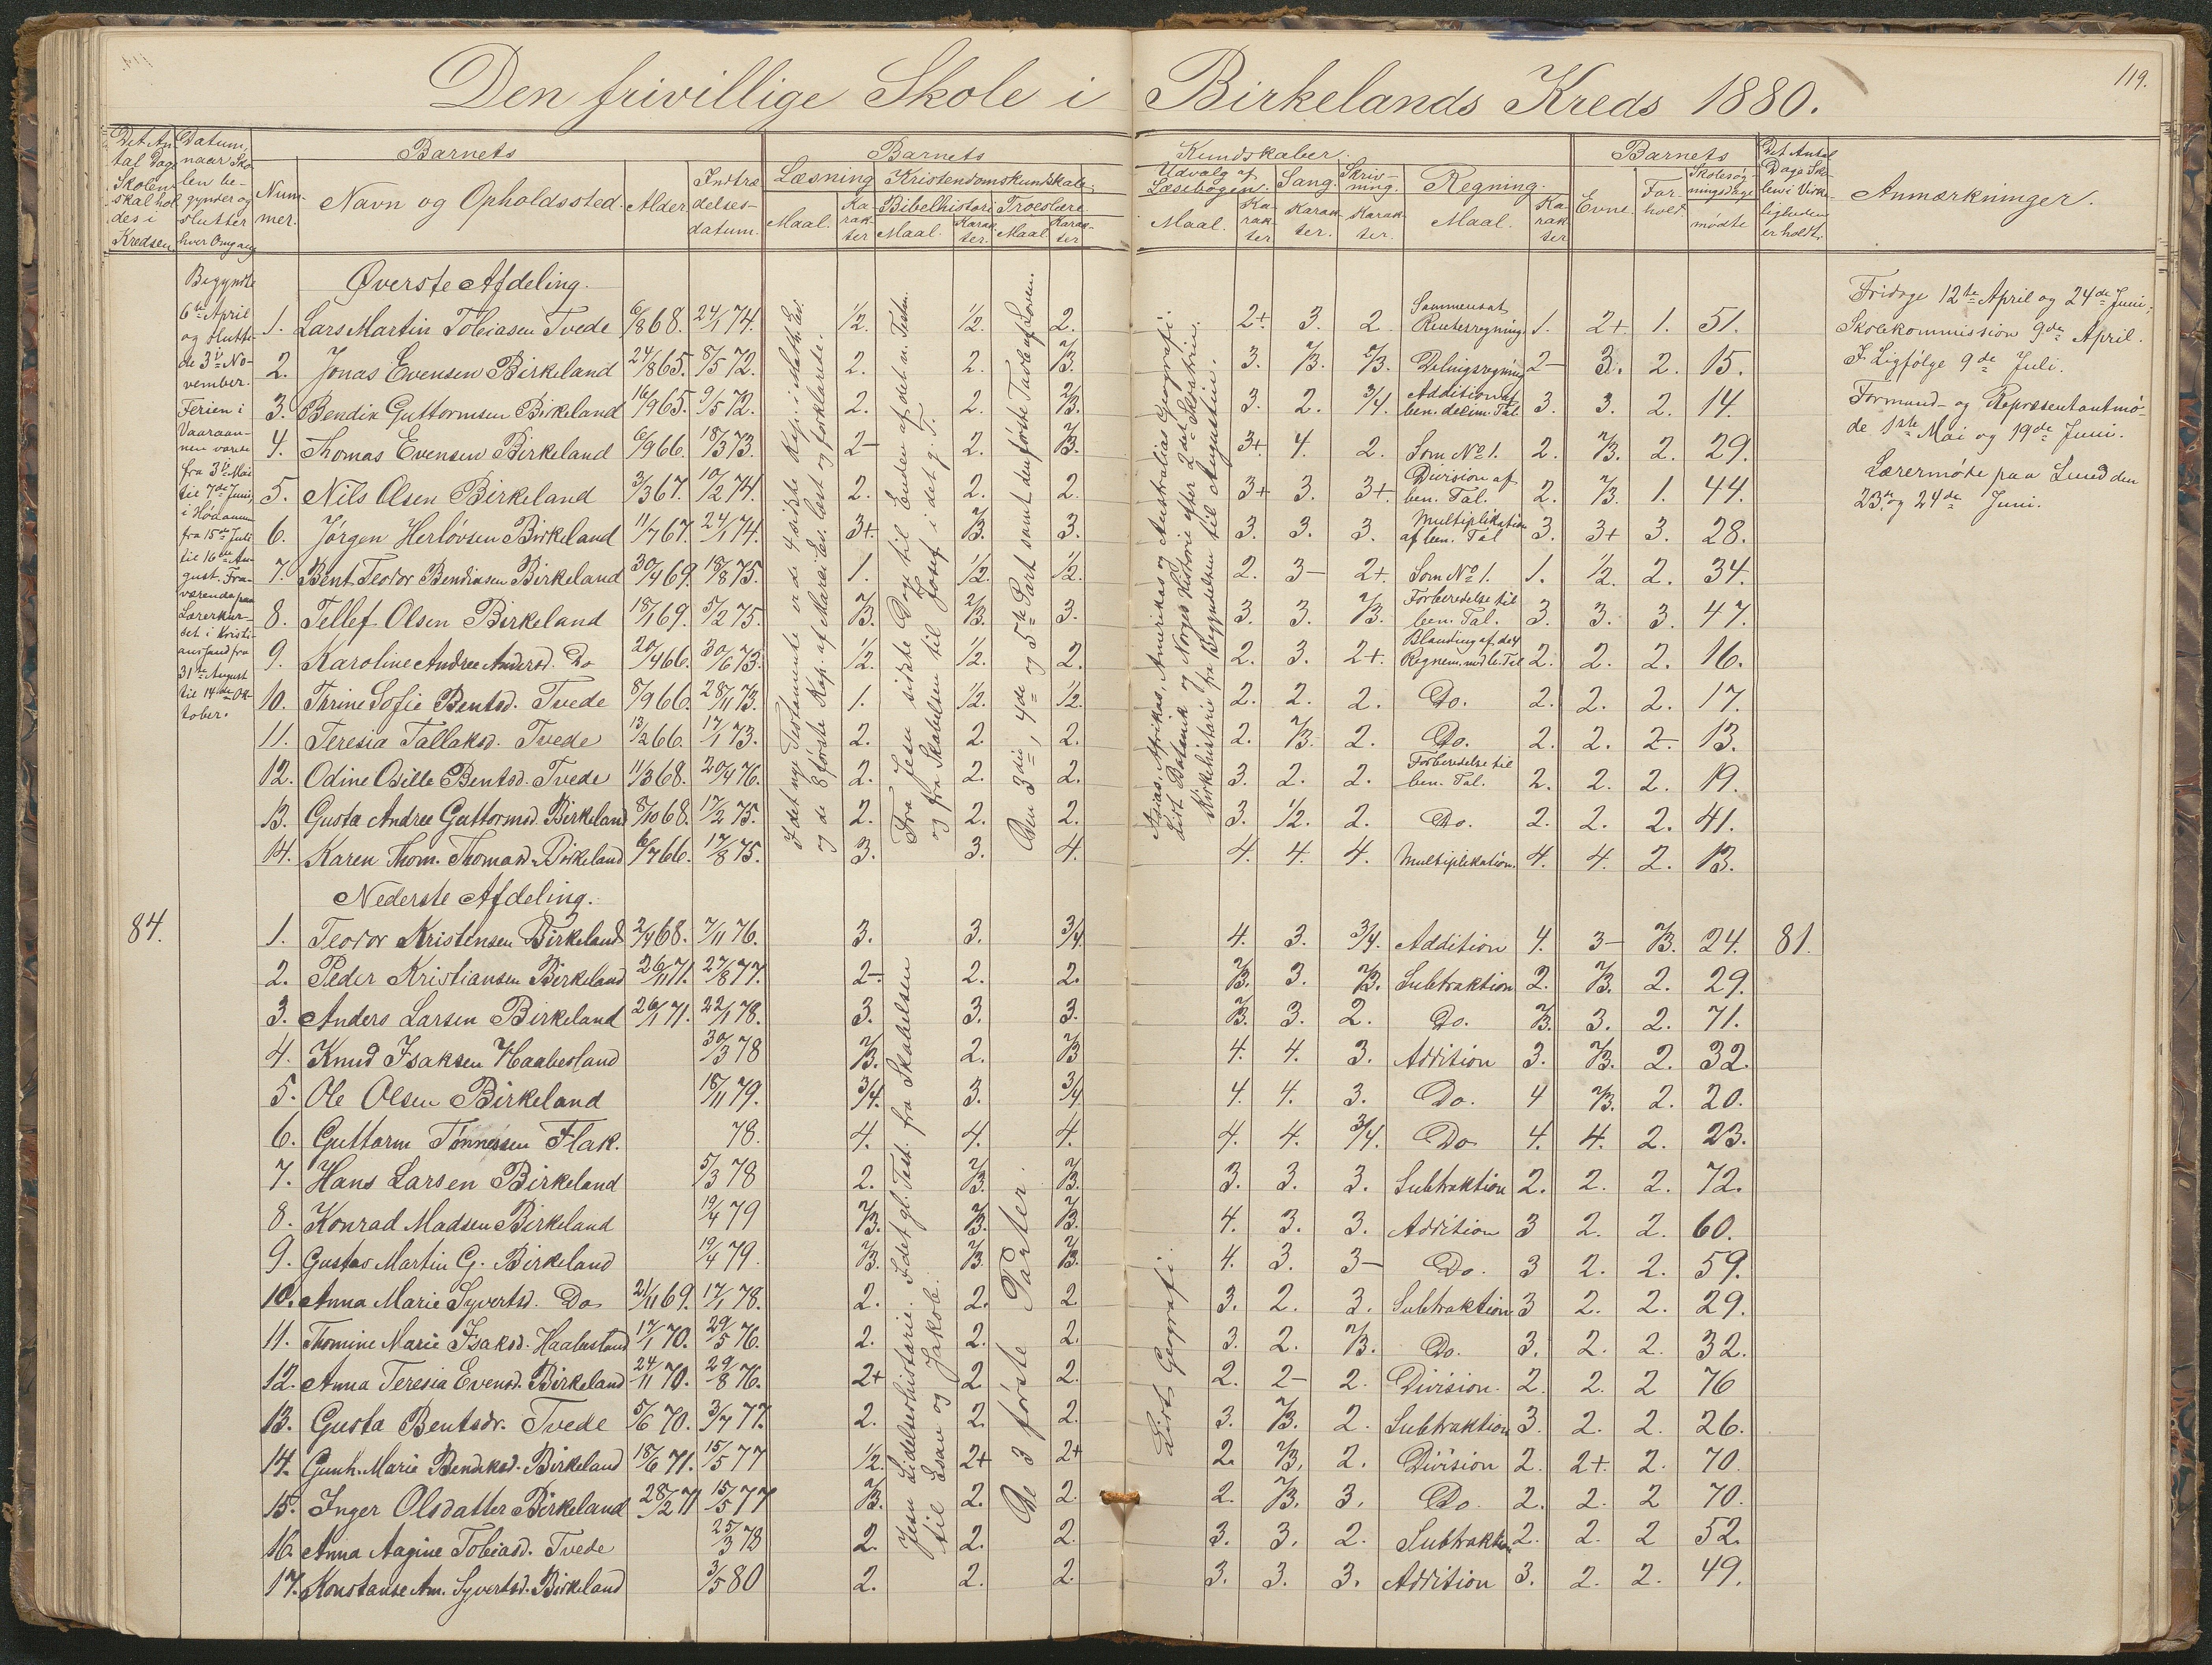 Den frivillige Skole i Birkelands Kreds 1880.
119.
Det Antal Dage Skolen skal holdes i Kredsen
Datum, naar Skolen begynder og slutter hver Omgang
Barnets
Nummer.
Navn og Opholdssted.
Alder
Indtrædelsesdatum.
Barnets Kundskaber.
Læsning
Maal.
Karakter
Kristendomskundskab.
Bibelhistorie
Maal.
Karakter.
Troeslære
Maal
Karakter
Udvalg af Læsebogen.
Maal.
Karakter
Sang.
Karakter.
Skrivning.
Karakter.
Regning.
Maal.
Karakter
Barnets
Evne.
Forhold.
Skolesøgningsdage
mødte
Det Antal Dage Skolen i Virkeligheden er holdt.
Anmærkninger.
Begyndte
6te April
og slutte-
de 3die No-
vember.
Ferien i
Vaaraan-
nen varede
fra 3die Mai
til 7de Juni,
i Høaannen
fra 15de Juli
til 16de Au-
gust. Fra-
værende paa
Lærerkur-
set i Kristi-
anssand fra
31te August
til 14de Ok-
tober.
Øverste Afdeling.
1. Lars Martin Tobiasen Tvede 6/8 68. 24/1 74. 1/2. 1/2. 2. 2+. 3. 2 Sammensat Renteregning 1. 2+ 1. 51.
2. Jonas Evensen Birkeland 24/8 65. 8/5 72. 2. 2. 2/3. 3. 2/3. 2/3. Delingsregning 2- 3. 2. 15.
3. Bendik Guttormsen Birkeland 16/9 65. 9/5 72. 2. 2. 2/3. 3. 2. 3/4. Addition af ben. decim. Tal 3. 3. 2. 14.
4. Thomas Evensen Birkeland 6/9 66. 18/3 73. 2- 2. 2/3. 3+ 4. 2. Som No 1. 2. 2/3. 2. 29.
5. Nils Olsen Birkeland 3/3 67. 10/2 74. 2. 2. 2. 3+ 3. 3+. Division af ben. Tal. 2. 2/3. 1. 44.
6. Jørgen Herlovsen Birkeland 11/7 67. 24/1 74. 3+. 2/3. 3. 3. 3. 3. Multiplikation af ben. Tal 3. 3+ 3. 28.
7. Bent Teodor Bendiksen Birkeland 30/4 69. 18/8 75. 1. 1/2. 1/2. 2. 3- 2+. Som No 1. 1. 1/2. 2. 34.
8. Tellef Olsen Birkeland 18/1 69. 5/2 75. 2/3. 2/3. 3. 3. 3. 2/3. Forberedelse til ben. Tal. 3. 3. 3. 47.
9. Karoline Andrea Andersd. Do 20/4 66. 30/6 73. 1/2. 1/2. 2. 2. 3. 2+. Blanding af de 4 Regnem. med b. Tal 2. 2. 2. 16.
10. Thrine Sofie Bentsd. Tvede 8/9 66. 28/11 73. 1. 1/2. 1/2. 2. 2. 2. Do. 2. 2. 2. 17.
11. Teresia Tallaksd. Tvede 13/2 66. 17/1 73. 2. 2. 2. 2. 2/3. 2. Do. 2. 2. 2. 13.
12. Odine Odille Bentsd. Tvede 11/3 68. 20/4 76. 2. 2. 2. 3. 2. 2. Forberedelse til ben. Tal. 2. 2. 2. 19.
13. Gusta Andrea Guttormsd. Birkeland 8/10 68. 17/2 75. 2. 2. 2. 3. 1/2. 2. Do. 2. 2. 2. 41.
14. Karen Thom. Thomasd. Birkeland 6/7 66. 17/8 75. 3. 3. 4. 4. 4. 4. Multiplikation. 4. 4. 2. 13.
I det nye Testamente er de 4 sidste Kap. i Math. Ev.
og de 8 første Kap. af Marci Ev. læst og forklarede.
Fra Jesu sidste Dage til Enden af det n. Testm.
og fra Skabelsen til Josef i det g. T.
Den 3die, 4de og 5te Part samt den første Tavle af Loven.
Asias, Afrikas, Amerikas og Australias Geografi.
Lidt Botanik og Norges Historie efter
Kirkehistorie fra Begyndelsen til Augustin.
Nederste Afdeling.
84.
1. Teodor Kristensen Birkeland 2/4 68. 7/11 76. 3. 3. 3/4. 4. 3. 3/4. Addition 4. 3- 2/3. 24. 81.
2. Peder Kristiansen Birkeland 26/11 71. 27/8 77. 2- 2. 2. 2/3. 3. 2/3. Subtraktion 2. 2/3. 2. 29.
3. Anders Larsen Birkeland 26/1 71. 22/1 78. 3. 3. 3. 2/3. 3. 2. Do. 2/3. 3. 2. 71.
4. Knud Isaksen Haabesland 30/3 78 2/3. 2. 2/3 4. 4. 3. Addition 3. 2/3. 2. 32.
5. Ole Olsen Birkeland 18/11 79. 3/4. 3. 3/4 4. 4. 3. Do. 4 2/3. 2. 20.
6. Guttorm Tønnessen Flak. 78. 4. 4. 4. 4. 4. 3/4. Do 4. 4. 2. 23.
7. Hans Larsen Birkeland 5/3 78 2. 2/3. 2/3. 3. 3. 3. Subtraktion 2. 2. 2. 72.
8. Konrad Madsen Birkeland 19/4 79 2/3. 2/3. 2/3. 4. 3. 3. Addition 3 2. 2. 60.
9. Gustav Martin G. Birkeland 19/4 79. 2/3. 2/3. 2/3. 4. 3. 3- Do. 3 2. 2. 59.
10. Anna Marie Syvertsd. Do 21/11 69. 17/1 78. 2. 2. 2. 3. 2. 3. Subtraktion 3 2. 2. 29.
11. Thomine Marie Isaksd. Haabesland 17/1 70. 29/5 76. 2. 2. 2. 3. 2. 2/3. Do. 3. 2. 2. 32.
12. Anna Teresia Evensd. Birkeland 24/11 70. 29/8 76. 2+ 2. 2. 2. 2- 2. Division. 2. 2. 2 76
13. Gusta Bentsdr. Tvede 5/6 70. 3/7 77. 2. 2. 2. 3. 2/3. 2. Subtraktion 3. 2. 2. 26.
14. Gunh. Marie Bendiksd. Birkeland 18/6 71. 15/5 77 1/2. 2+ 2+ 2. 2/3. 2. Division 2. 2+. 2. 70.
15. Inger Olsdatter Birkeland 28/2 71 15/5 77 2/3. 2. 2. 2. 2/3. 3. Do. 2. 2. 2 70.
16. Anna Aagine Tobiasd. Tvede 25/3 78 2. 2. 2. 3. 3. 2. Subtraktion 2. 2. 2 52.
17. Konstanse Am. Syvertsd. Birkeland 3/5 80 2. 2. 2. 3. 3. 3. Addition 3. 2. 2. 49.
Jesu Lidelseshistorie. I det gl. Test. fra Skabelsen
til Esau og Jakob.
De 3 første Parter.
Lidt Geografi.
Fridage 12te April og 24de Juni;
Skolekommission 9de April.
I Ligfølge 9de Juli.
Formand- og Repræsentantmø-
de 1ste Mai og 19de Juni.
Lærermøde paa Lund den
23de og 24de Juni.